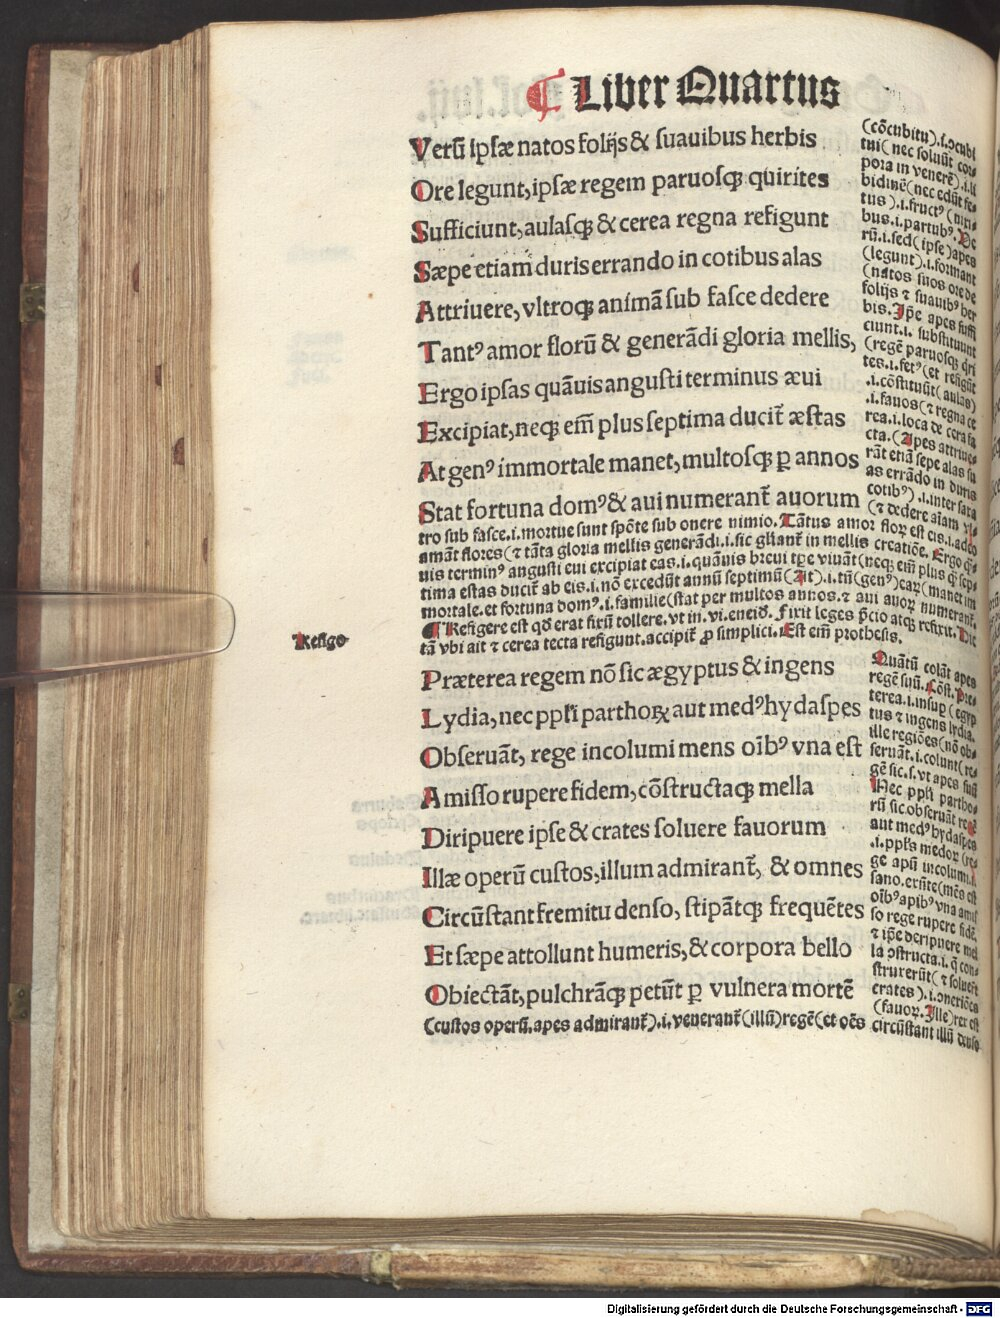 ❡ Liber Quartus
Verū ipsæ natos folijs & suauibus herbis
Ore legunt, ipsæ regem paruosqꝫ quirites
Sufficiunt, aulasqꝫ & cerea regna refigunt
Sæpe etiam duris errando in cotibus alas
Attriuere, vltroqꝫ animā sub fasce dedere
Tantꝰ amor florū & generādi gloria mellis,
Ergo ipsas quāuis angusti terminus æui
Excipiat, neqꝫ em̄ plus septima ducit̄ æstas
At genꝰ immortale manet, multosqꝫ ꝑ annos
Stat fortuna domꝰ & aui numerant̄ auorum
(cōcubitu).i.ↄcubi
tui(nec soluūt cor
pora in venerē).i.li
bidinē(nec edūt fe
tus).i.fructꝰ(niti-
bus.i.partubꝰ. De
rū.i.sed(ipse)apes
(legunt).i.formant
(natos suos ore de
folijs ⁊ suauibꝰ her
bis. Ipe apes suffi
ciunt.i. substituunt
(regē paruosqꝫ qri
tes.i.fetꝰ(et refigūt
.i.cōstituūt(aulas)
.i.fauos(⁊ regna ce
rea.i.loca de cera fa
cta.(Apes attriue-
rāt etiā sepe alas su
as errādo in duris
cotibꝰ).i.inter saxa
(⁊ dedere aīam vl-
tro sub fasce.i.mortue sunt spōte sub onere nimio. Tātus amor floꝝ est eis.i.adeo
amāt flores(⁊ tāta gloria mellis generādi.i.sic gliant̄ in mellis creatiōe. Ergo q̄-
uis terminꝰ angusti eui excipiat eas.i.quāuis breui tꝑe viuāt(neqꝫ em̄ plus q̄ sep-
tima estas ducit̄ ab eis.i.nō excedūt annū septimū(At).i.tn̄(genꝰ)eaꝝ(manet im
mortale.et fortuna domꝰ.i.familie(stat per multos annos.⁊ aui auoꝝ numerant̄.
❡ Refigere est qd̄ erat fixū tollere.vt in.vi.eneid. Fixit leges p̄cio atqꝫ refixit. Hic
tā vbi ait ⁊ cerea tecta refigunt.accipit̄ ꝓ simplici. Est em̄ prothesis.
Refigo
Præterea regem nō sic ægyptus & ingens
Lydia, nec ppl̄i parthoꝝ aut medꝰ hydaspes
Obseruāt, rege incolumi mens oībꝰ vna est
Amisso rupere fidem, cōstructaqꝫ mella
Diripuere ipse & crates soluere fauorum
Illæ operū custos, illum admirant̄, & omnes
Circūstant fremitu denso, stipātqꝫ frequētes
Et sæpe attollunt humeris, & corpora bello
Obiectāt, pulchrāqꝫ petūt ꝑ vulnera mortē
Quātū colāt apes
regē suū. Cōst. Pre-
terea.i.insuꝑ(egyp
tus ⁊ ingens lydia.
ille regiōes(nō ob-
seruāt.i.colunt(re-
gē sic.s.vt apes suū
Nec ppl̄i partho-
rū sic obseruāt regē
aut medꝰ hydaspes
.i.ppl̄s medoꝝ(re-
ge apū incolumi.i.
sano.exn̄te(mēs est
oībꝰ apibꝰ vna amis
so rege rupere fidē.
⁊ ip̄e deripuere mel
la ↄstructa.i. q̄ con-
struxerūt(⁊ soluerūt
crates).i.ↄnexiōes
(fauoꝝ. Ille)rex est
(custos operū.apes admirant̄).i.venerant̄(illū)regē(et oēs circūstant illū denso
Digitalisierung gefördert durch die Deutsche Forschungsgemeinschaft - DFG